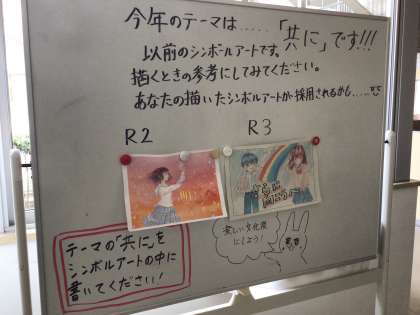 今年のテーマは.....「共に」です!!!
以前のシンボルアートです。
描くときの参考にしてみてください。
あなたの描いたシンボルアートが採用されるかも.....
R2
R3
テーマの「共に」を
シンボルアートの中に
書いてください!
楽しい文化祭
にしよう!